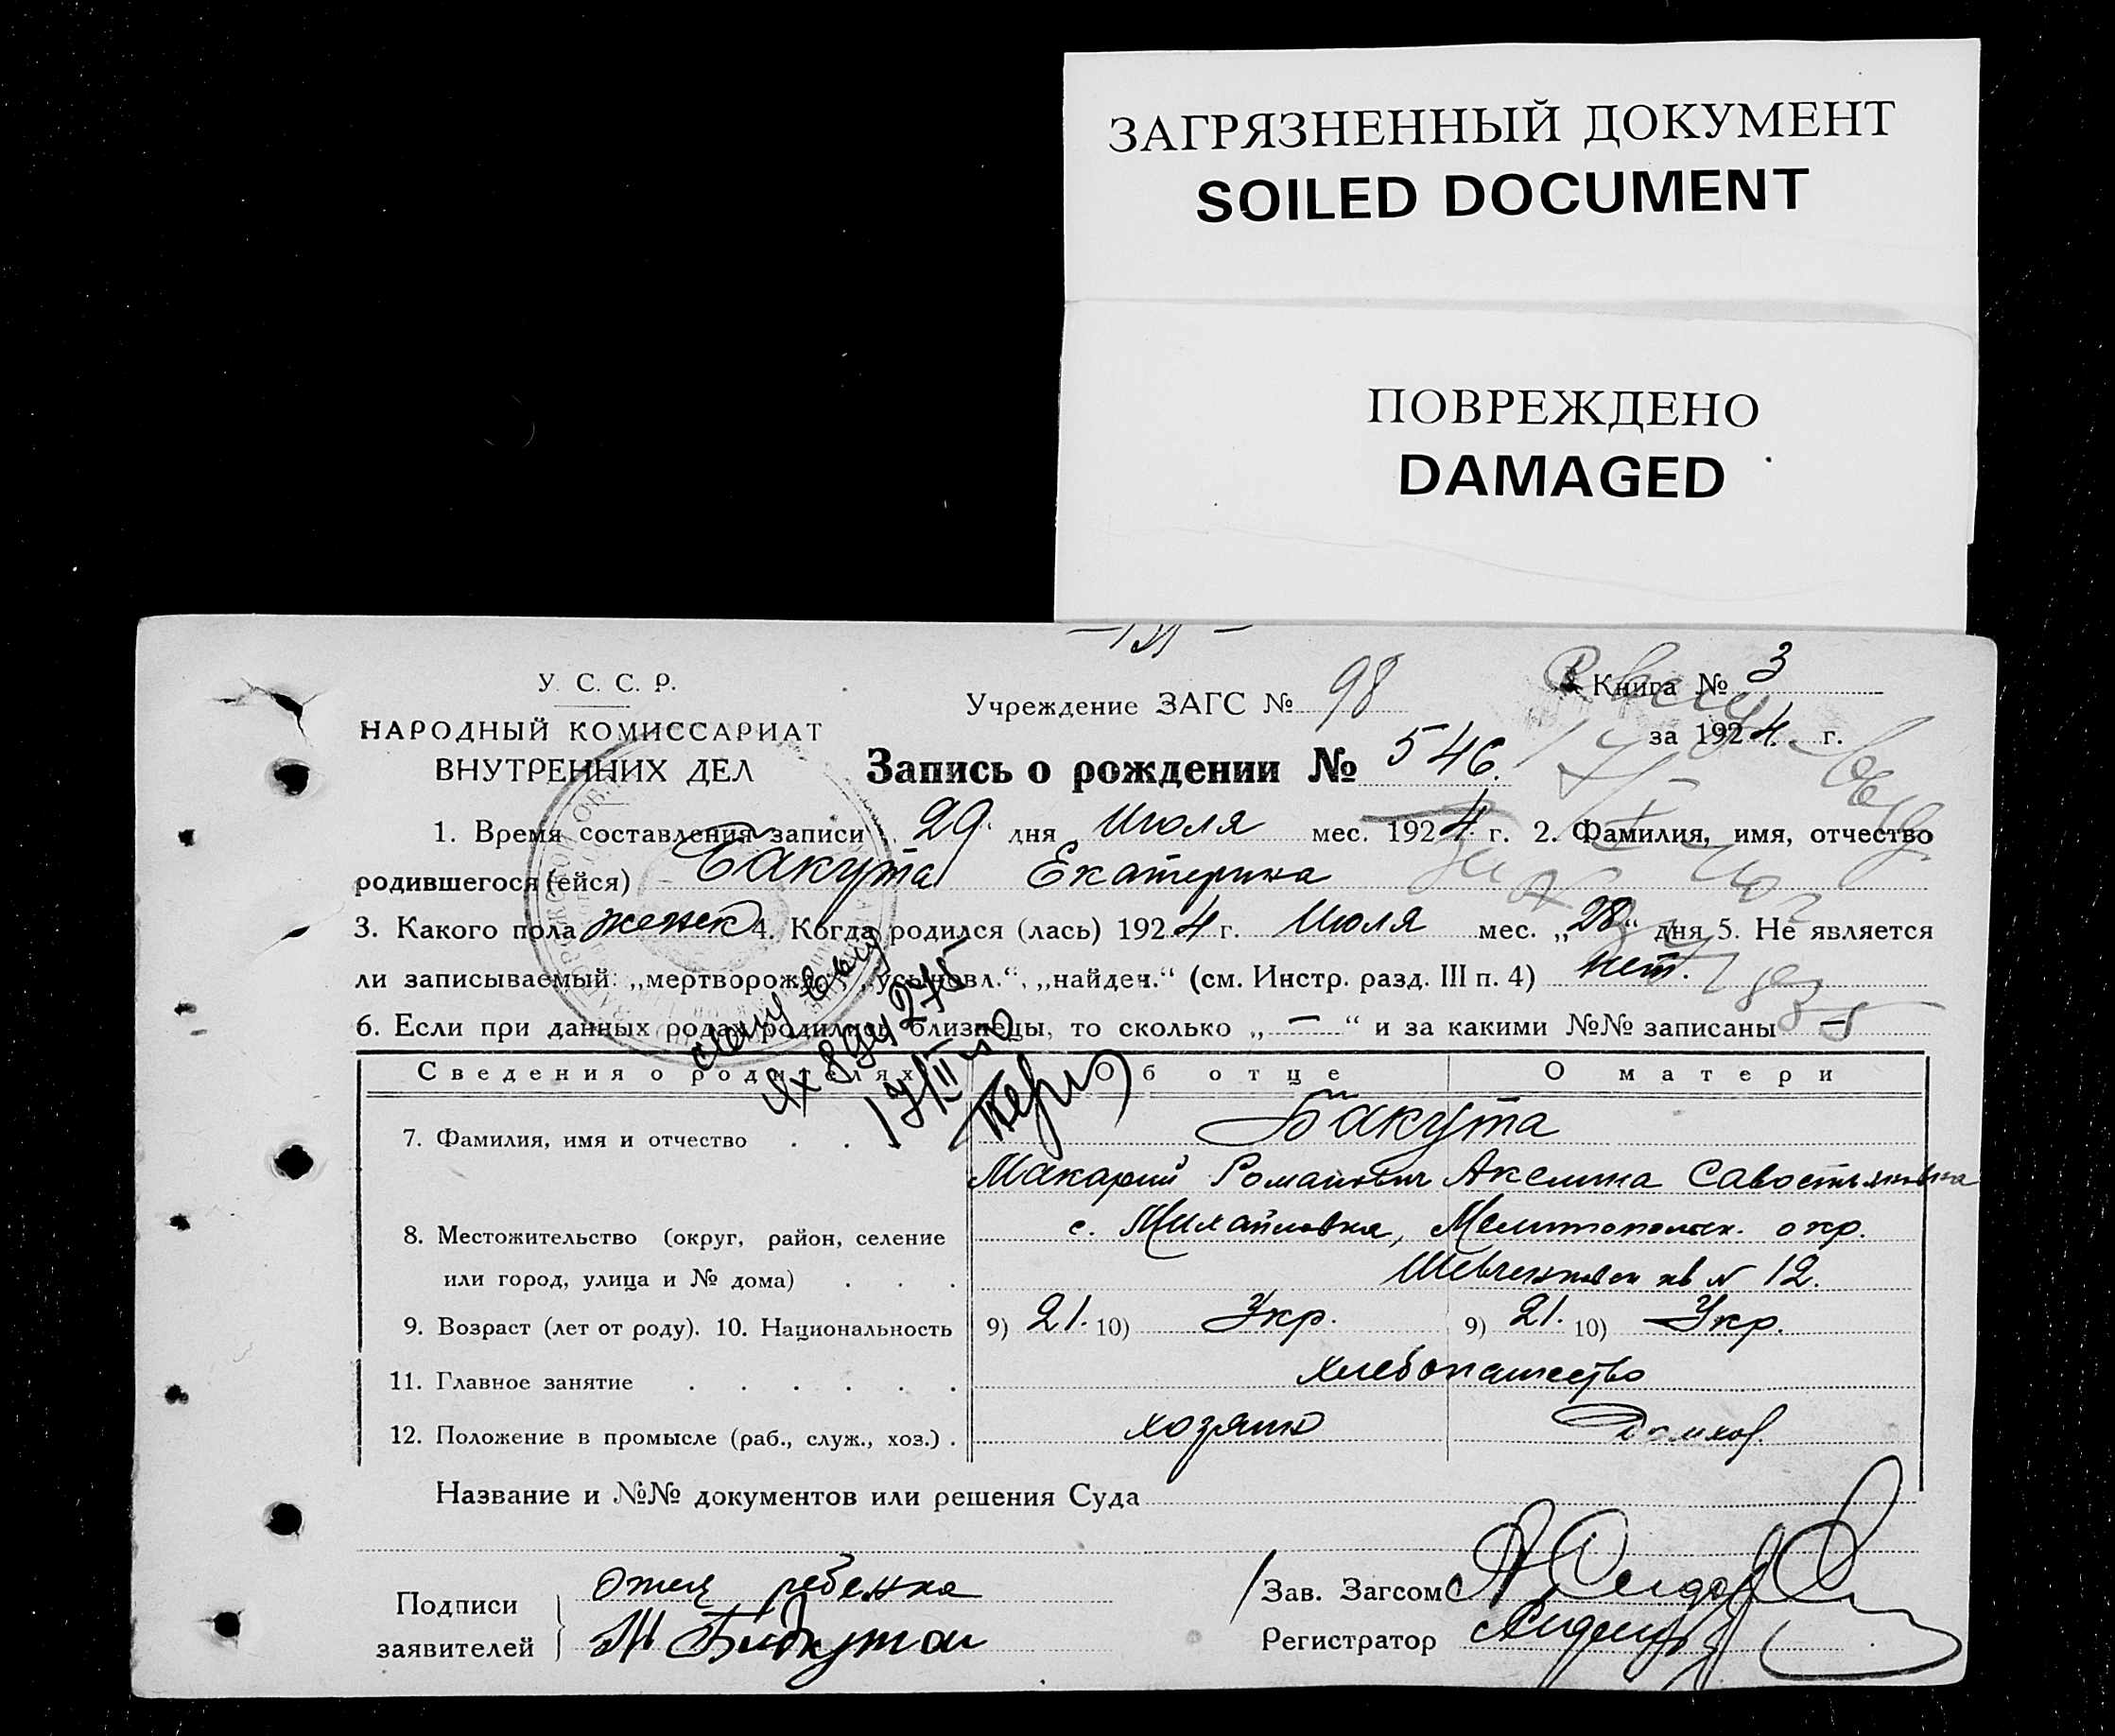 ЗАГРЯЗНЕННЫЙ ДОКУМЕНТ
SOILED DOCUMENT
ПОВРЕЖДЕНО
DAMAGED
У. С. С. Р.
НАРОДНЫЙ КОМИССАРИАТ
ВНУТРЕННИХ ДЕЛ
Учреждение ЗАГС № 98
Книга № 3
за 1924 г.
Запись о рождении № 546.
1. Время составления записи 29 дня Июля мес. 1924 г. 2. Фамилия, имя, отчество
родившегося (ейся) Бакута Екатерина
3. Какого пола женск 4. Когда родился (лась) 1924 г. Июля мес. „28“ дня 5. Не является
ли записываемый: „мертворожд.“, „усыновл.“, „найден.“ (см. Инстр. разд. III п. 4) нет.
6. Если при данных родах родились близнецы, то сколько „—“ и за какими №№ записаны —
Сведения о родителях Об отце О матери
7. Фамилия, имя и отчество . . . Бакута
Макарий Романович Акелина Савостьяновна
8. Местожительство (округ, район, селение с. Михайловка, Мелитопольск. окр.
или город, улица и № дома) . . . Шевченков кв N 12.
9. Возраст (лет от роду). 10. Национальность 9) 21. 10) Укр. 9) 21. 10) Укр.
11. Главное занятие . . . . . . хлебопашество
12. Положение в промысле (раб., служ., хоз.) . хозяин Домхоз.
Название и №№ документов или решения Суда
Подписи
заявителей
Отец ребенка
М Бакута
Зав. Загсом
Регистратор